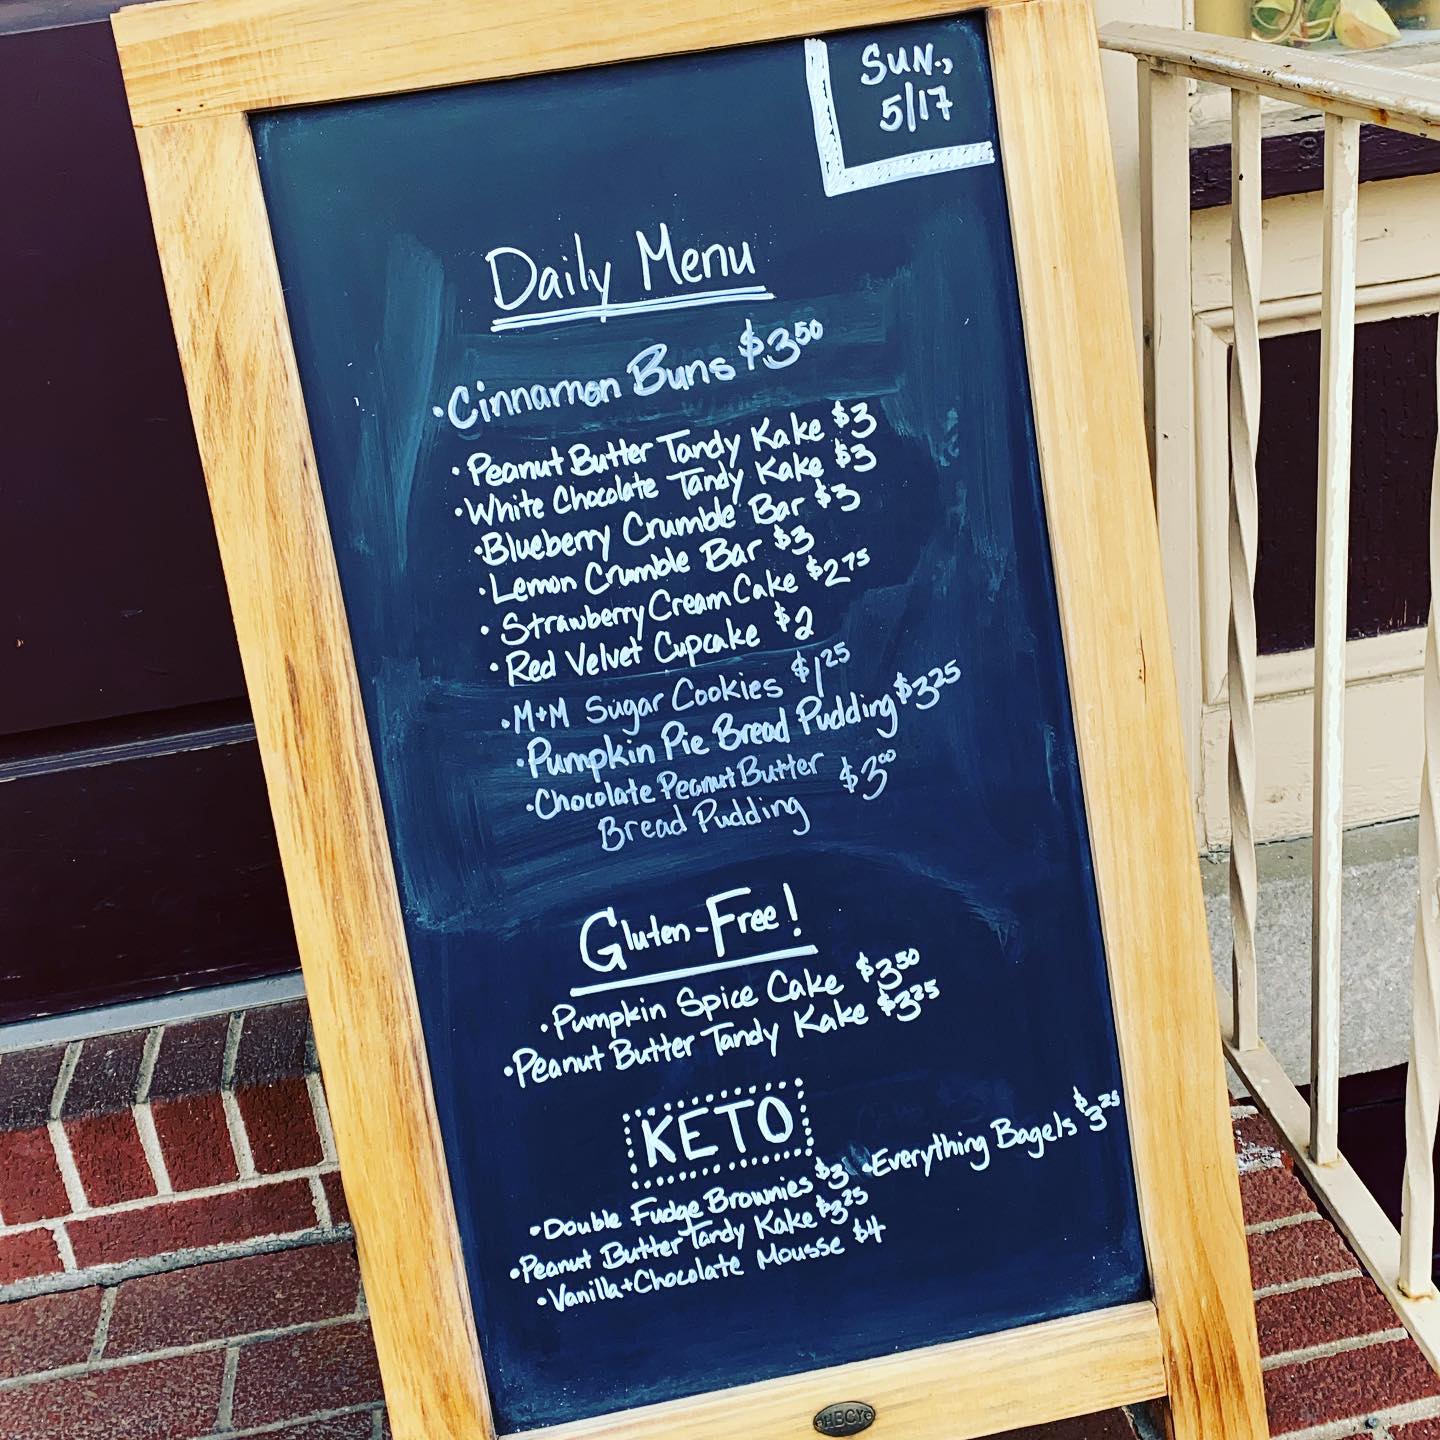 SUN.,
5/17
Daily Menu
• Cinnamon Buns $3⁵⁰
• Peanut Butter Tandy Kake $3
• White Chocolate Tandy Kake $3
• Blueberry Crumble Bar $3
• Lemon Crumble Bar $3
• Strawberry Cream Cake $2⁷⁵
• Red Velvet Cupcake $2
• M+M Sugar Cookies $1²⁵
• Pumpkin Pie Bread Pudding $3²⁵
• Chocolate Peanut Butter $3⁰⁰
Bread Pudding
Gluten-Free!
• Pumpkin Spice Cake $3⁵⁰
• Peanut Butter Tandy Kake $3²⁵
KETO
• Double Fudge Brownies $3
• Everything Bagels $3²⁵
• Peanut Butter Tandy Kake $3²⁵
• Vanilla+Chocolate Mousse $4
HBCY